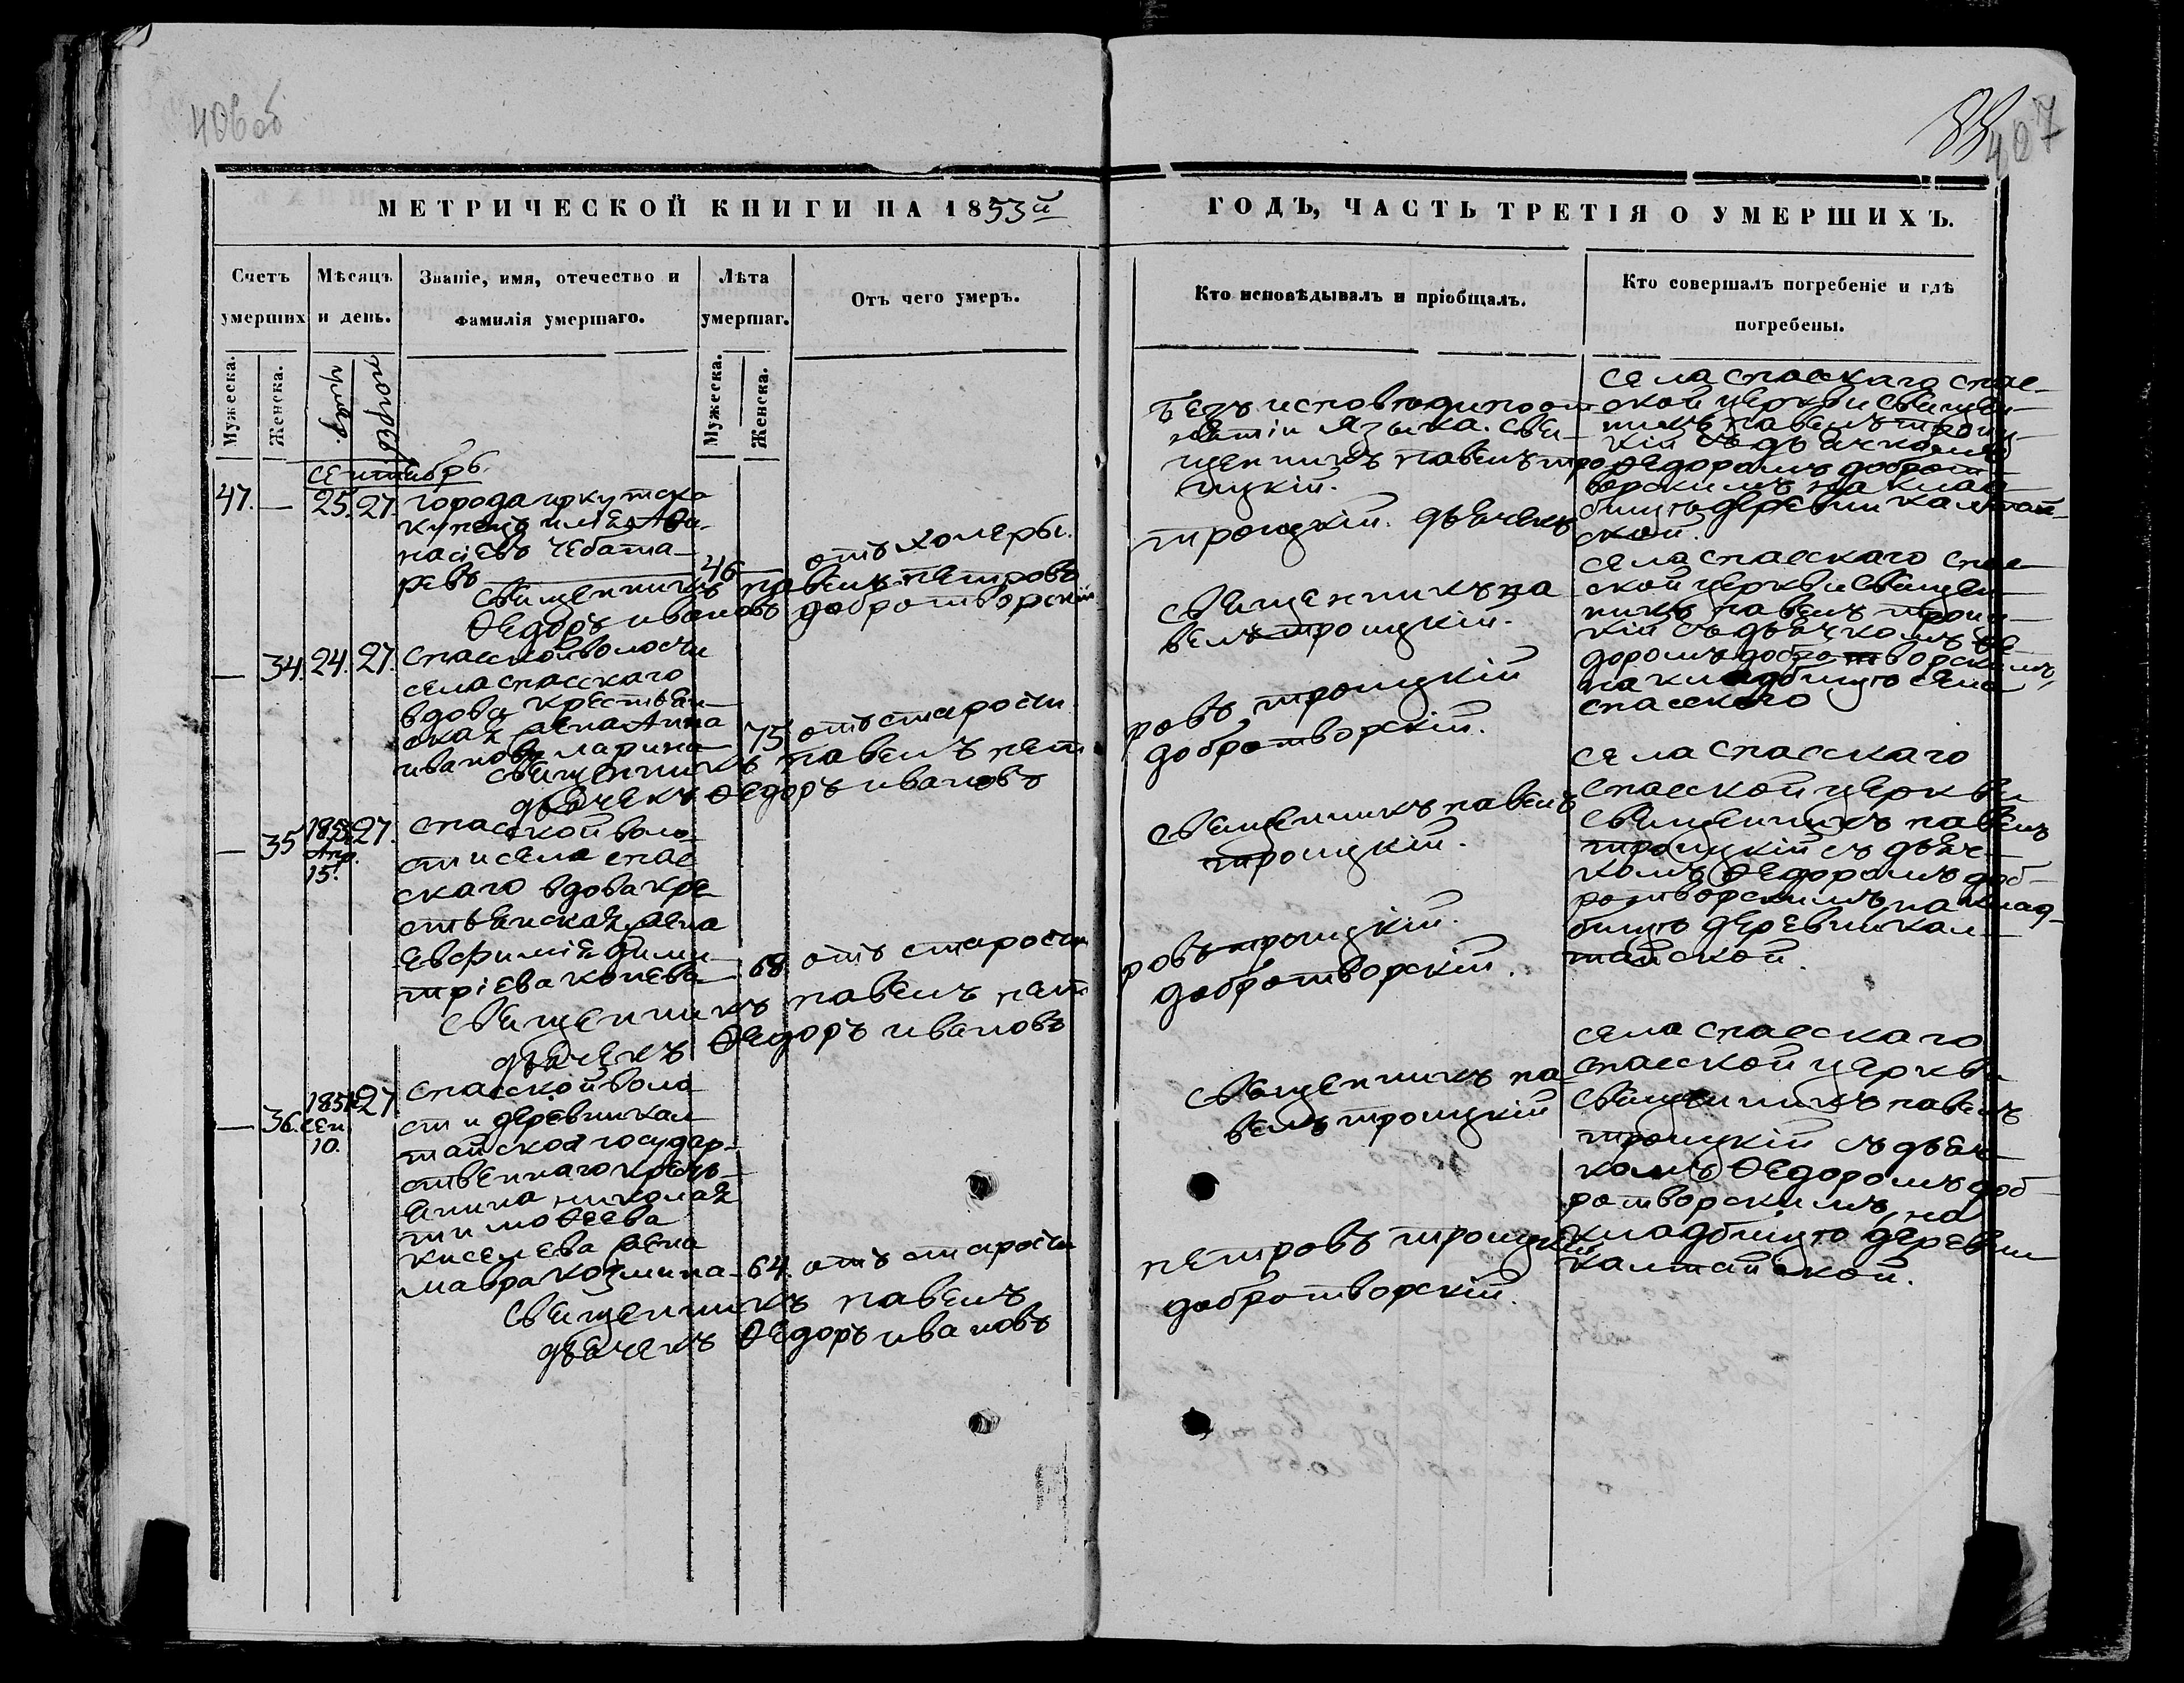 406 об
407
МЕТРИЧЕСКОЙ КНИГИ НА 1853й
ГОДЪ, ЧАСТЬ ТРЕТІЯ О УМЕРШИХЪ.
Счетъ умерших
Мѣсяцъ и день.
Званіе, имя, отечество и фамилія умершаго.
Лѣта умершаг.
Отъ чего умеръ.
Кто исповѣдывалъ и пріобщалъ.
Кто совершалъ погребеніе и гдѣ погребены.
Мужеска.
Женска.
умер.
погреб.
Мужеска.
Женска.
Сентябрь.
47. — 25. 27.
города иркутска
купецъ илія Афа-
насіевъ Чебата-
ревъ — 46 — отъ холеры.
безъ исповѣди по от-
нятіи языка. свя-
щенникъ павелъ тро
ицкій.
села спасскаго спас-
ской церкви священ-
никъ павелъ троиц-
кій съ дьячкомъ
Ѳедоромъ доброт-
ворскимъ на клад-
бищѣ деревни калтай-
ской.
священникъ павелъ петровъ троицкій. дьячекъ
Ѳедоръ ивановъ добротворскій
— 34. 24. 27.
спасской волости
села спасскаго
вдова крестьян-
ская жена Анна
иванова ларина 75 отъ старости
священникъ па
велъ троицкій.
села спасскаго спас-
ской церкви священ-
никъ павелъ троиц-
кій съ дьячкомъ Ѳе-
доромъ добротворскимъ,
на кладбищѣ села
спасскаго
священникъ павелъ пет ровъ троицкій
дьячекъ Ѳедоръ ивановъ добротворскій.
— 35 Апр. 15. 27.
спасской воло
сти села спас
скаго вдова кре
стьянская жена
Евфимія дими
тріева конева — 68. отъ старости
священникъ павелъ
троицкій.
села спасскаго
спасской церкви
священникъ павелъ
троицкій съ дьяч-
комъ Ѳедоромъ доб-
ротворскимъ на клад-
бищѣ деревни кал-
тайской.
священникъ павелъ пет ровъ троицкій.
дьячекъ Ѳедоръ ивановъ добротворскій.
— 36. сен. 10. 27
спасской воло
сти деревни кал
тайской государ-
ственнаго кресть-
янина николая
тимоѳеева
киселева жена
мавра козмина — 64. отъ старости
священникъ па
велъ троицкій
села спасскаго
спасской церкви
священникъ павелъ
троицкій съ дьяч-
комъ Ѳедоромъ доб-
ротворскимъ, на
кладбищѣ деревни
калтайской.
священникъ павелъ петровъ троицкій
дьячекъ Ѳедоръ ивановъ добротворскій.